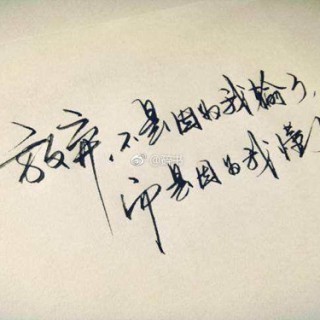 放弃，不是因为我输了，
而是因为我懂了